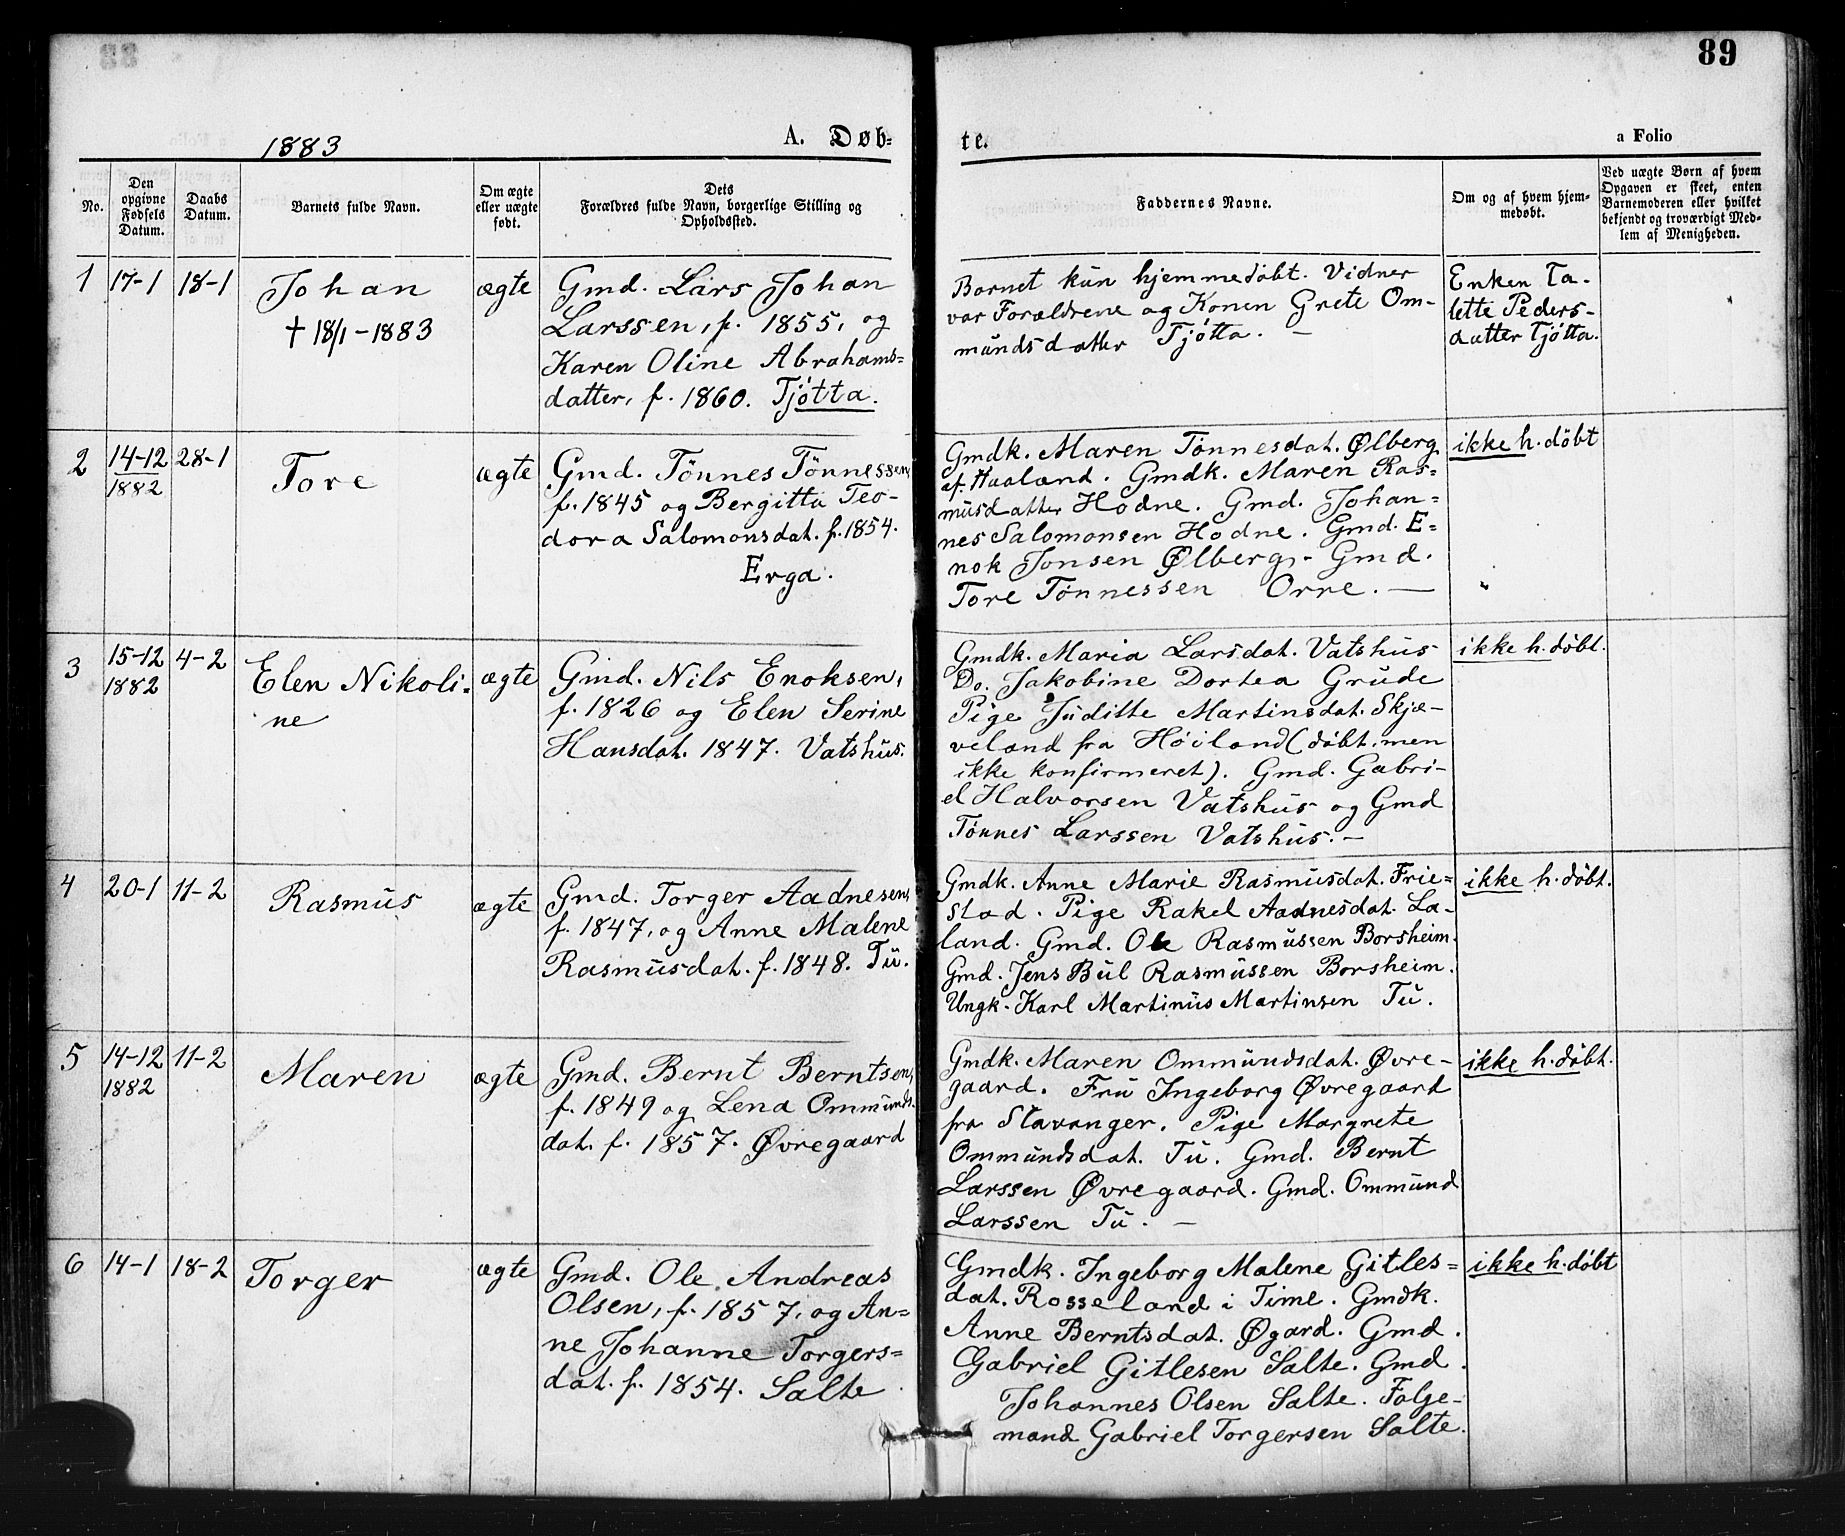 89
1883
A. Døb-
te.
a Folio
No.
Den opgivne Fødsels Datum.
Daabs Datum.
Barnets fulde Navn.
Om ægte eller uægte født.
Dets
Forældres fulde Navn, borgerlige Stilling og Opholdssted.
Faddernes Navne.
Om og af hvem hjem-
medøbt.
Ved uægte Børn af hvem
Opgaven er skeet, enten
Barnemoderen eller hvilket
bekjendt og troværdigt Med-
lem af Menigheden.
1
17-1
18-1
Johan
† 18/1-1883
ægte
Gmd. Lars Johan
Larssen, f. 1855, og
Karen Oline Abrahams=
datter, f. 1860. Tjøtta.
Barnet kun hjemmedøbt. Vidner
var Forældrene og Konen Grete Om-
mundsdatter Tjøtta. –
Enken Ta-
lette Peders-
datter Tjøtta.
2
14-12
1882
28-1
Tore
ægte
Gmd. Tønnes Tønnessen,
f. 1845 og Bergitta Teo-
dora Salomonsdat. f. 1854.
Erga.
Gmdk. Maren Tønnesdat. Ølberg
af Haaland. Gmdk. Maren Ras=
musdatter Hodne. Gmd. Johan=
nes Salomonsen Hodne. Gmd. E=
nok Jonsen Ølberg. - Gmd.
Tore Tønnessen Orre. —
ikke h. døbt
"
3
15-12
1882
4-2
Elen Nikoli-
ne
ægte
Gmd. Nils Enoksen,
f. 1826 og Elen Serine
Hansdat. 1847. Vatshus.
Gmdk. Maria Larsdat. Vatshus
Do. Jakobine Dortea Grude
Pige Juditte Martinsdat. Skjæ-
veland fra Høiland (døbt, men
ikke konfirmeret). Gmd. Gabri-
el Halvorsen Vatshus og Gmd
Tønnes Larssen Vatshus. –
ikke h. døbt.
4
20-1
11-2
Rasmus
ægte
Gmd. Torger Aadnesen,
f. 1847, og Anne Malene
Rasmusdat. f. 1848. Tu.
Gmdk. Anne Marie Rasmusdat. Frie=
stad. Pige Rakel Aadnesdat. La-
land. Gmd. Ole Rasmussen Borsheim.
Gmd. Jens Bul Rasmussen Borsheim.
Ungk. Karl Martinus Martinsen Tu.
ikke h. døbt.
5
14-12
1882
11-2
Maren
ægte
Gmd. Bernt Berntsen,
f. 1849 og Lena Ommunds-
dat. f. 1857. Øvregaard
Gmdk. Maren Ommundsdat. Øvre-
gaard. Fru Ingeborg Øvregaard
fra Stavanger. Pige Margrete
Ommundsdat. Tu. Gmd. Bernt
Larssen Øvregaard. Gmd. Ommund
Larssen Tu. –
ikke h. døbt.
6
14-1
18-2
Torger
ægte
Gmd. Ole Andreas
Olsen, f. 1857, og An=
ne Johanne Torgers=
dat. f. 1854. Salte
Gmdk. Ingeborg Malene Gitles=
dat. Rosseland i Time. Gmdk.
Anne Berntsdat. Øgard. Gmd.
Gabriel Gitlesen Salte. Gmd.
Johannes Olsen Salte. Følge-
mand Gabriel Torgersen Salte.
ikke h. døbt